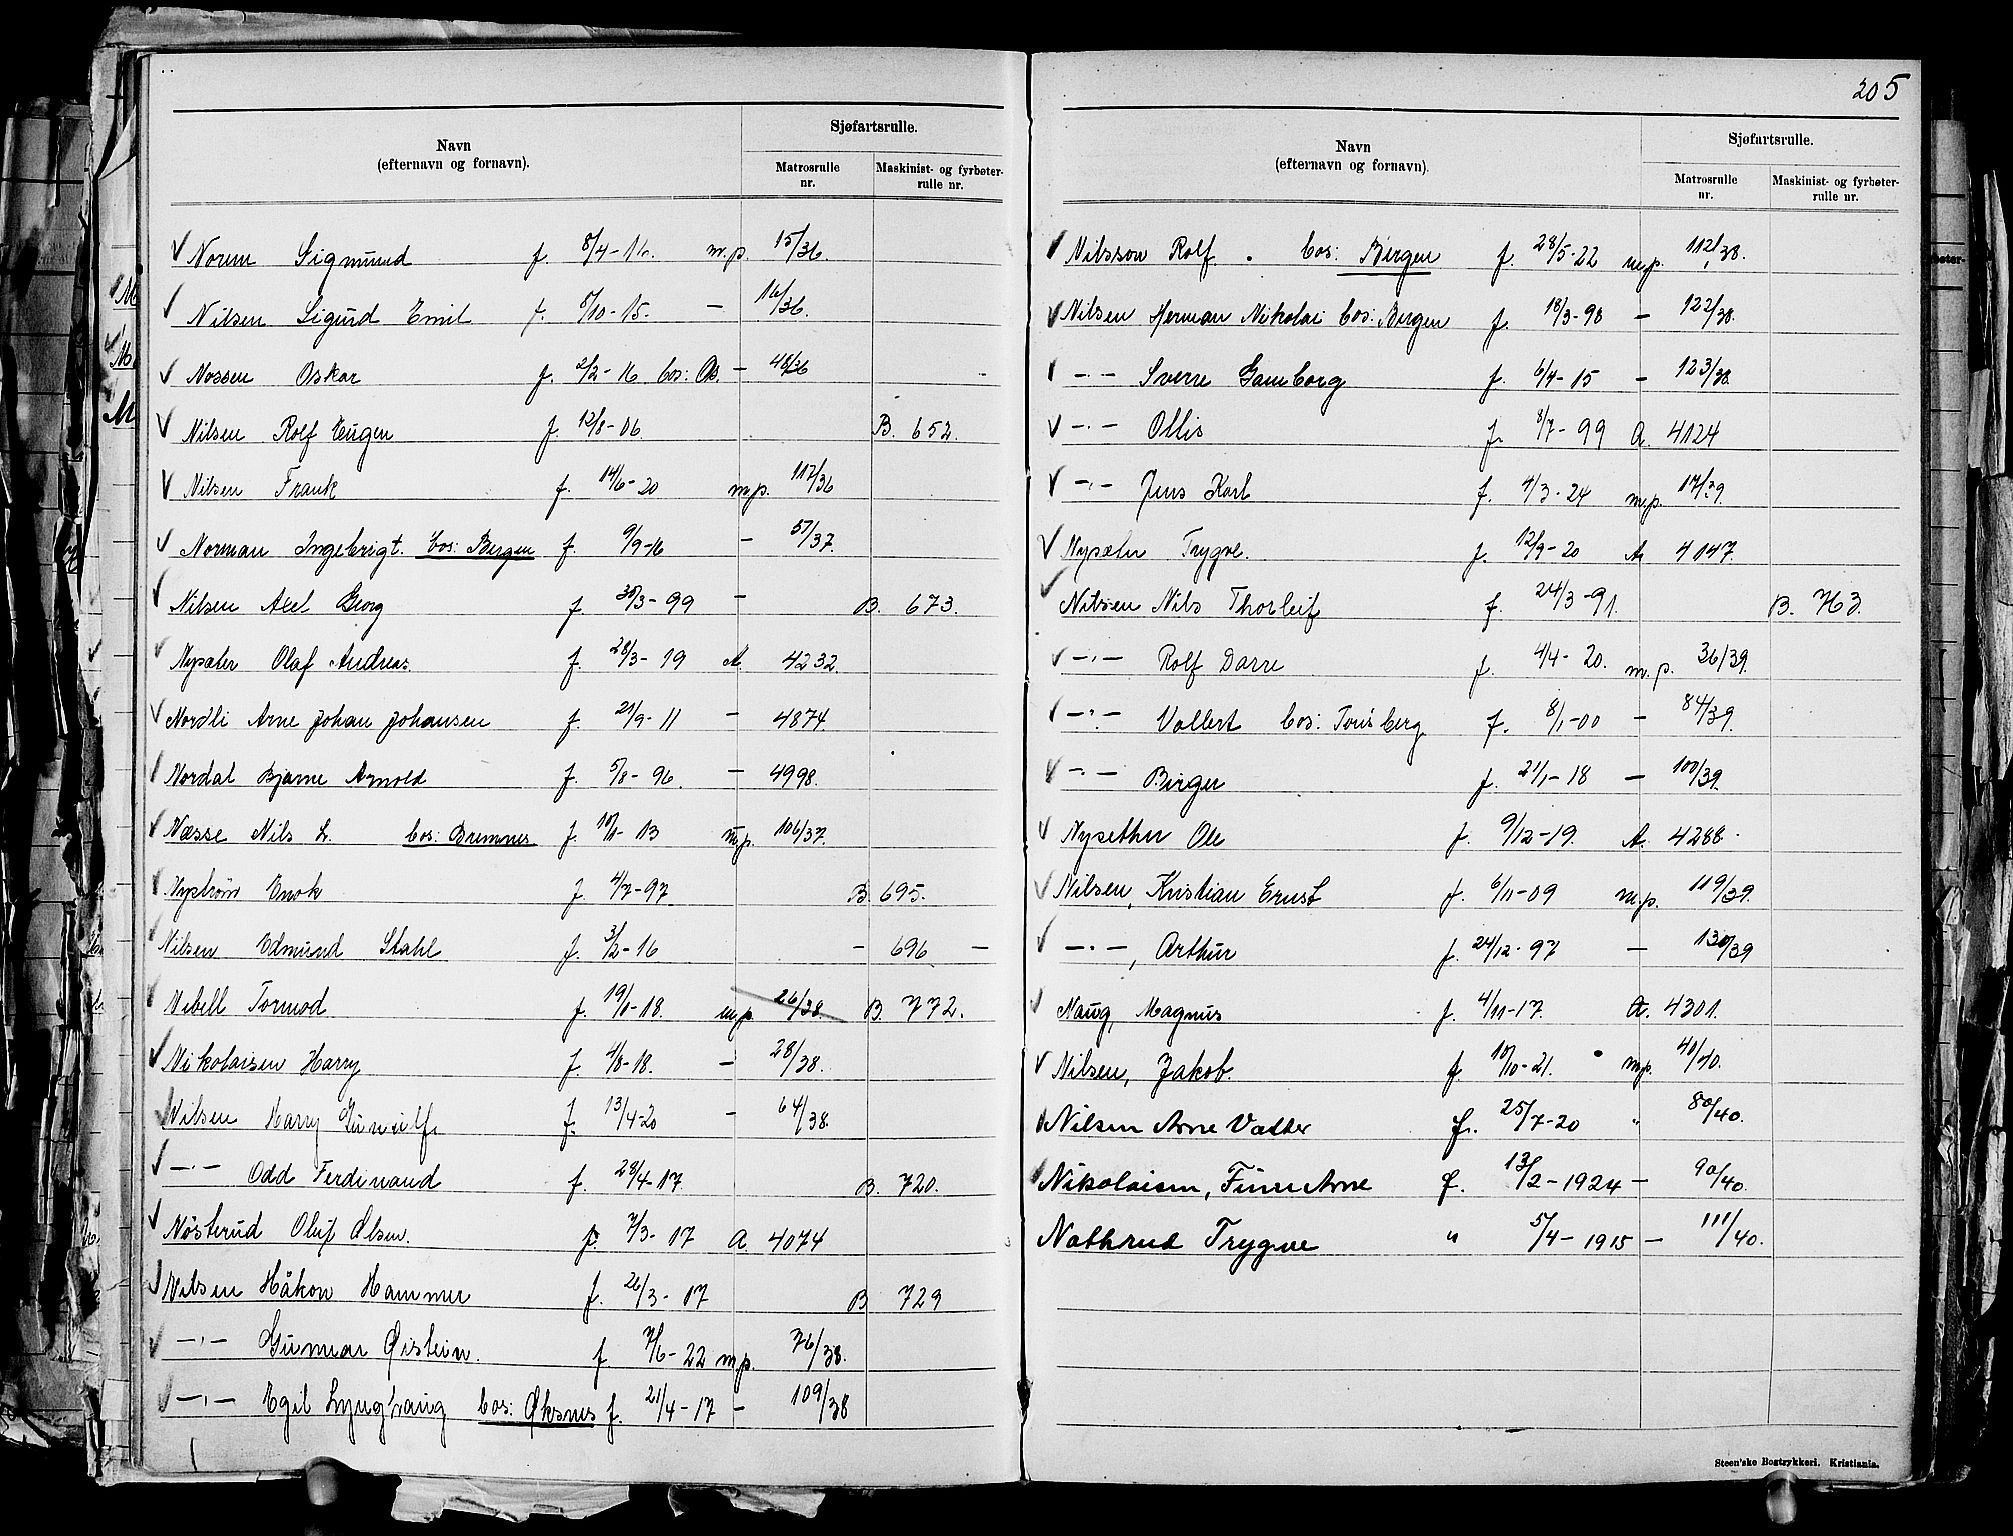 Navn
(efternavn og fornavn).
Sjøfartsrulle.
Matrosrulle nr.
Maskinist- og fyrbøter-rulle nr.
Norem Sigmund f. 8/4-16. m.p. 15/36.
Nilsen Sigurd Emil f. 8/10-15. — 16/36.
Nossen Oskar f. 2/2-16 bos: Os. — 48/36
Nilsen Rolf Eugen f. 12/8-06 B. 652.
Nilsen Frank f. 14/6-20 m.p. 112/36
Norman Ingebrigt. bos: Bergen f. 9/9-16 — 57/37.
Nilsen Axel Georg f. 30/3-99 — B. 673.
Nysæter Olaf Andreas. f. 28/3-19 A. 4232.
Nordli Arne Johan Johansen f. 21/9-11 — 4874.
Nordal Bjarne Arnold f. 5/8-96. — 4998.
Næsse Nils L. bos: Bremnes f. 10/11-13 m.p. 106/37.
Nystrøm Enok f. 4/7-97. B. 695.
Nilsen Edmund Stahl f. 3/2-16 — 696 —
Nibell Tormod f. 19/1-18. m.p. 26/38. B. 772.
Nikolaisen Harry f. 4/8-18. — 28/38.
Nilsen Harry Gunulf. f. 13/4-20 — 64/38.
—·— Odd Ferdinand f. 28/4-17. B. 720.
Nøsterud Oluf Olsen. f. 7/3-17 A. 4074
Nilsen Håkon Hammer f. 26/3-17 B 729
—·— Gunnar Øistein. f. 7/6-22 m.p. 76/38.
—·— Egil Lynghaug bos: Øksnes f. 21/4-17 — 109/38
205
Navn
(efternavn og fornavn).
Sjøfartsrulle.
Matrosrulle nr.
Maskinist- og fyrbøter-rulle nr.
Nilsson Rolf. bos: Bergen f. 28/5-22 m.p. 112/38.
Nilsen Herman Nikolai bos: Bergen f. 18/3-98 — 122/38.
—·— Sverre Gamborg f. 6/4-15 — 123/38
—·— Ollis f. 8/7-99 A. 4124
—·— Jens Karl f. 4/3-24 m.p. 17/39.
Nysæter Trygve. f. 12/9-20 A. 4147.
Nilsen Nils Thorleif f. 24/3-91. B. 763.
—·— Rolf Darre f. 4/4-20. m.p. 36/39.
—·— Vollert bos: Tønsberg f. 8/1-00 — 84/39.
—·— Birger f. 21/1-18 — 100/39.
Nysether Ole f. 9/12-19. A. 4288.
Nilsen, Kristian Ernst f. 6/11-09 m.p. 119/39.
—·—, Arthur f. 24/12-97 — 130/39
Naug, Magnus f. 4/11-17. A. 4301.
Nilsen, Jakob. f. 10/10-21. m.p. 40/40.
Nilsen Arne Valter f. 25/7-20 " 80/40.
Nikolaisen, Finn Arne f. 13/2-1924 — 90/40.
Nathrud Trygve " 5/4-1915 — 111/40.
Steen'ske Bogtrykkeri. Kristiania.